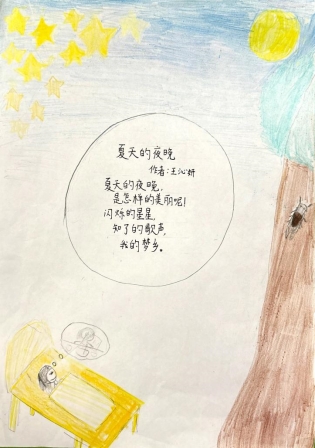 夏天的夜晚
作者:王沁妍
夏天的夜晚,
是怎样的美丽呢!
闪烁的星星,
知了的歌声,
我的梦乡。